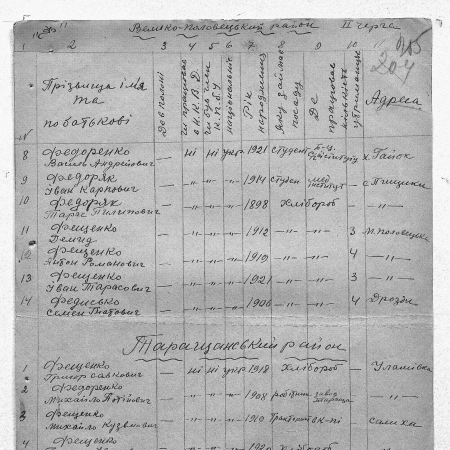 Велико-Половецький район II черга
204
1 2 3 4 5 6 7 8 9 10
Прізвища імя та по батькові
Де в полоні
чи працював в Н.К.В.Д.
чи був член К.П.б.У
національність
Рік народження
Яку займав посаду
Де працював
кількість утриманців
Адреса
8 Федоренко Василь Андрійович — ні ні укр 1921 студент інституту — х Гайок
9 Федоряк Іван Карпович — " " " 1914 студен мед інститут — с Пищики
10 Федоряк Тарас Пилипович — " " " 1898 Хлібороб — — "
11 Фещенко Демид — " " " 1912 — " — 3 м. Половецьке
12 Фещенко Антон Романович — " " " 1919 — " — 4 — " —
13 Фещенко Іван Тарасович — " " " 1921 — " — 3 — " —
14 Федисько Семен — " " " 1906 — " — 4 Дрозди
Таращанський район
1 Фещенко Григор Савкович — ні ні укр 1918 Хлібороб — Улашівка
2 Федоренко Михайло — " " " 1908 робітник завод Тараща — "
3 Фещенко Михайло Кузьмович — " " " 1910 Тракторист к-пі —
4 Фещенко — " " " Хлібороб